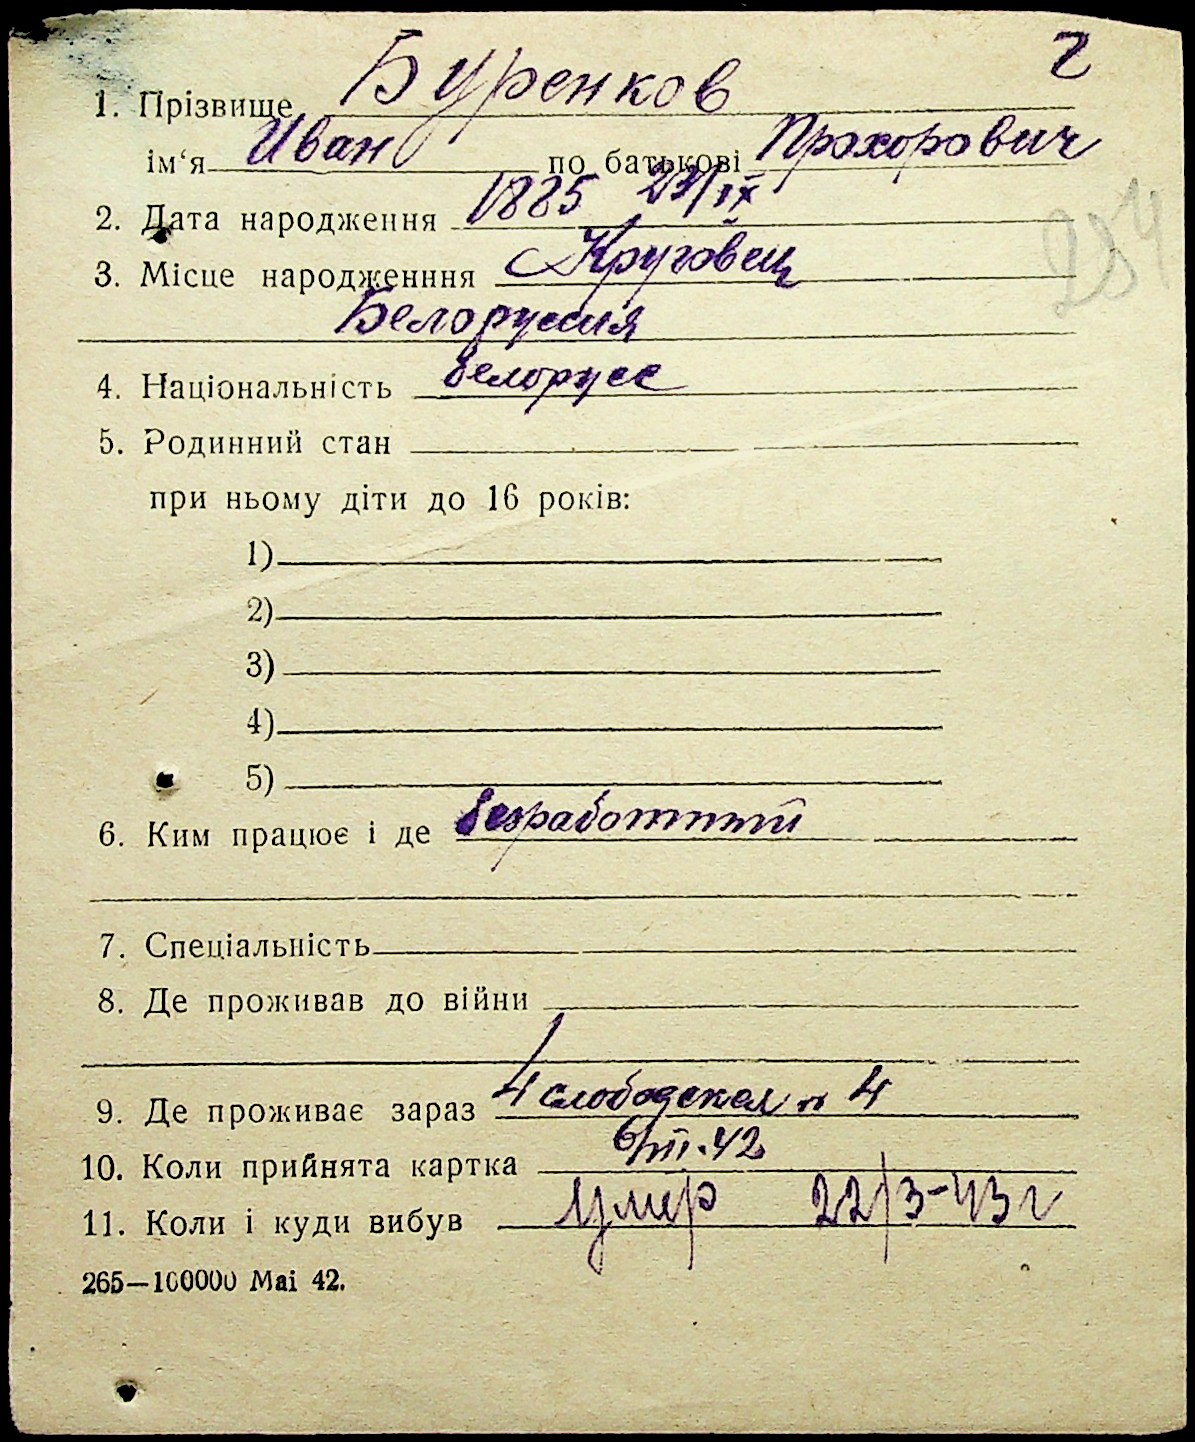 2
1. Прізвище Буренков
ім‘я Иван по батькові Прохорович
2. Дата народження 1885 23/IX
3. Місце народженння с Круговец
Белоруссия
284
4. Національність белорусс
5. Родинний стан
при ньому діти до 16 років:
1)
2)
3)
4)
5)
6. Ким працює і де безработный
7. Спеціальність
8. Де проживав до війни
9. Де проживає зараз 4 слободская 4
10. Коли прийнята картка 6/III.42
11. Коли і куди вибув умер 22/3-43 г
265—100000 Mai 42.